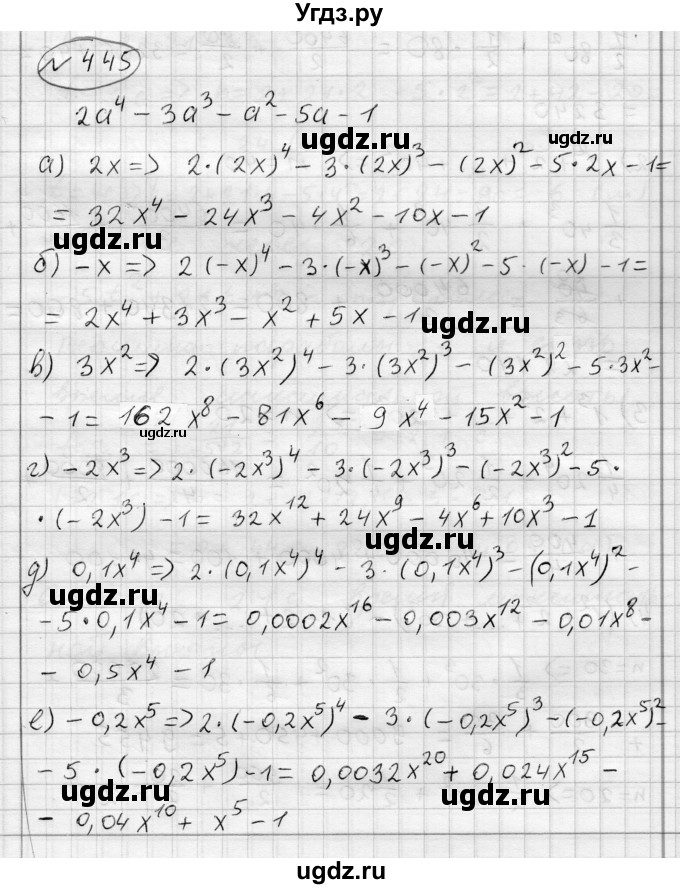 Угдз.ру
№ 445
2a⁴ - 3a³ - a² - 5a - 1
ugdz.ru ugdz.ru
а) 2x => 2·(2x)⁴ - 3·(2x)³ - (2x)² - 5·2x - 1 =
= 32x⁴ - 24x³ - 4x² - 10x - 1
ugdz.ru
б) -x => 2(-x)⁴ - 3·(-x)³ - (-x)² - 5·(-x) - 1 =
= 2x⁴ + 3x³ - x² + 5x - 1
ugdz.ru
в) 3x² => 2·(3x²)⁴ - 3·(3x²)³ - (3x²)² - 5·3x² -
- 1 = 162x⁸ - 81x⁶ - 9x⁴ - 15x² - 1
ugdz.ru
г) -2x³ => 2·(-2x³)⁴ - 3·(-2x³)³ - (-2x³)² - 5·
·(-2x³) - 1 = 32x¹² + 24x⁹ - 4x⁶ + 10x³ - 1
ugdz.ru
д) 0,1x⁴ => 2·(0,1x⁴)⁴ - 3·(0,1x⁴)³ - (0,1x⁴)² -
ugdz.ru
- 5·0,1x⁴ - 1 = 0,0002x¹⁶ - 0,003x¹² - 0,01x⁸ -
- 0,5x⁴ - 1
ugdz.ru
е) -0,2x⁵ => 2·(-0,2x⁵)⁴ - 3·(-0,2x⁵)³ - (-0,2x⁵)² -
- 5·(-0,2x⁵) - 1 = 0,0032x²⁰ + 0,024x¹⁵ -
ugdz.ru ugdz.ru
- 0,04x¹⁰ + x⁵ - 1
ugdz.ru